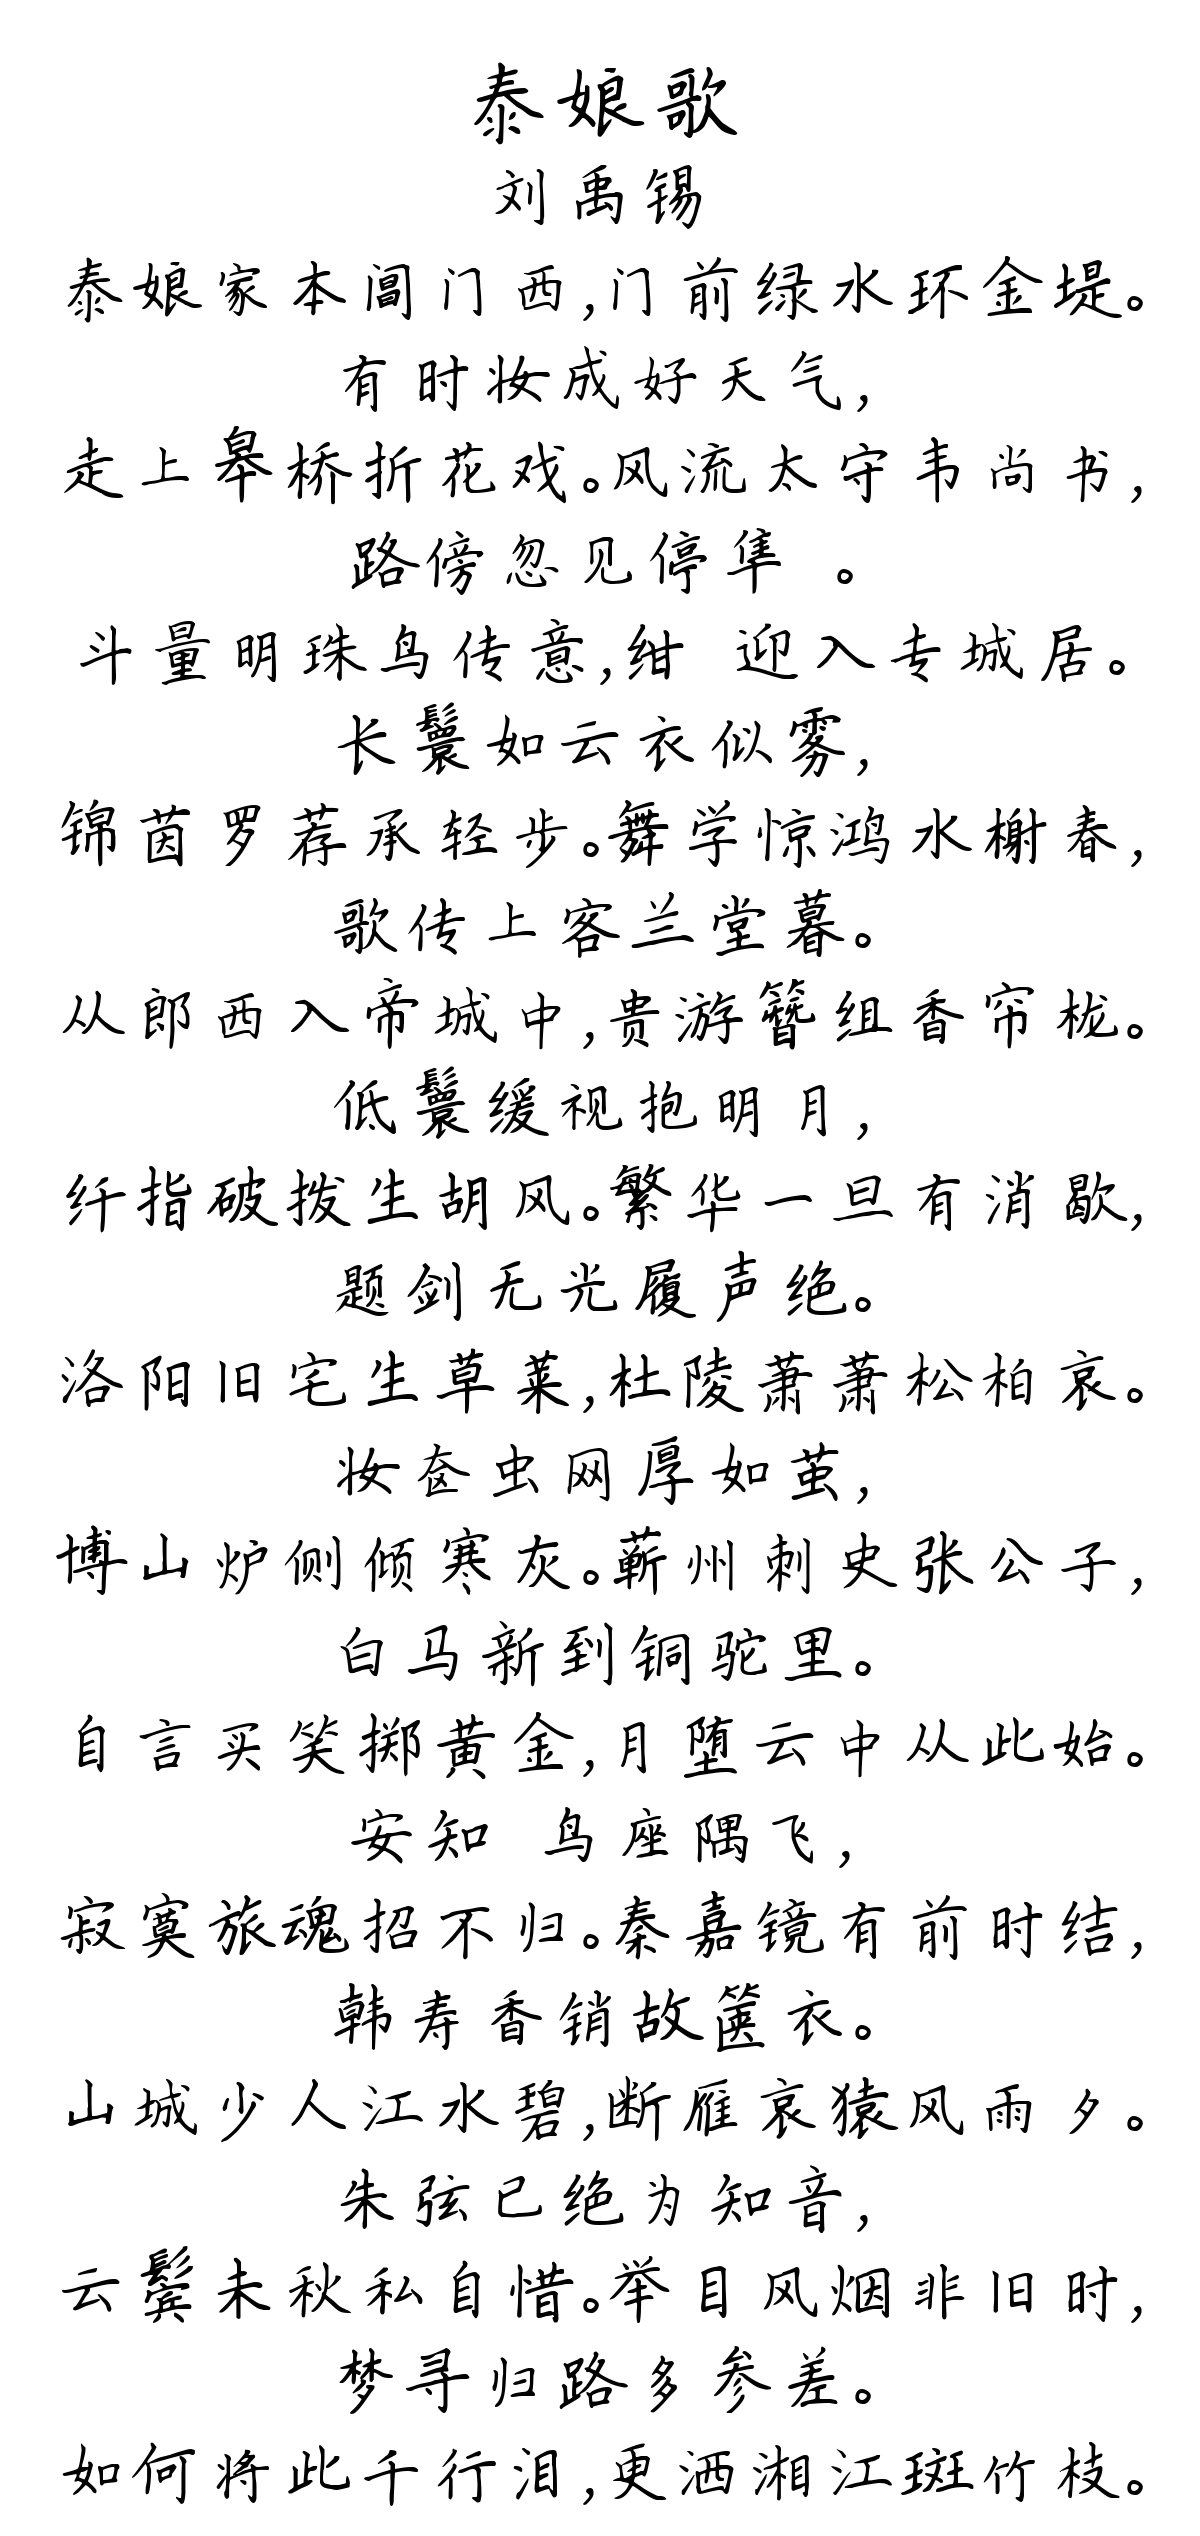 泰娘歌
刘禹锡
泰娘家本阊门西,门前绿水环金堤。
有时妆成好天气,
走上皋桥折花戏。风流太守韦尚书,
路傍忽见停隼 。
斗量明珠鸟传意,绀 迎入专城居。
长鬟如云衣似雾,
锦茵罗荐承轻步。舞学惊鸿水榭春,
歌传上客兰堂暮。
从郎西入帝城中,贵游簪组香帘栊。
低鬟缓视抱明月,
纤指破拨生胡风。繁华一旦有消歇,
题剑无光履声绝。
洛阳旧宅生草莱,杜陵萧萧松柏哀。
妆奁虫网厚如茧,
博山炉侧倾寒灰。蕲州刺史张公子,
白马新到铜驼里。
自言买笑掷黄金,月堕云中从此始。
安知 鸟座隅飞,
寂寞旅魂招不归。秦嘉镜有前时结,
韩寿香销故箧衣。
山城少人江水碧,断雁哀猿风雨夕。
朱弦已绝为知音,
云鬓未秋私自惜。举目风烟非旧时,
梦寻归路多参差。
如何将此千行泪,更洒湘江斑竹枝。